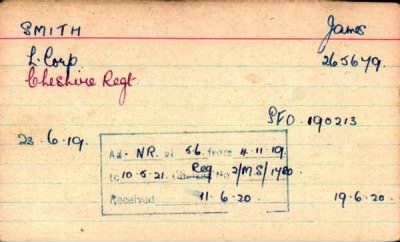 SMITH James
L. Corp. 265679.
Cheshire Regt
SFO. 190213
23.6.19.
Ad- NR. at 56. from 4.11.19.
to 10.5.21. Reg. No 2/MS/1480.
Received 11.6.20. 19.6.20.